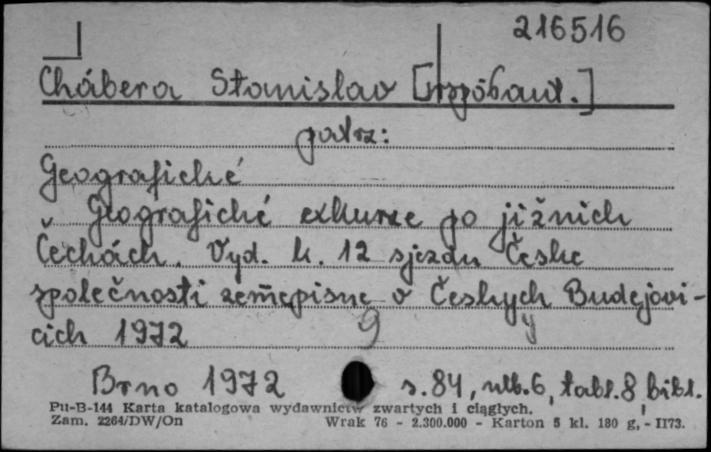 216516
Chábera Stanislav [współaut.]
patrz:
Geografické
Geografické exkurze po jižnich
Čechách. Vyd. k. 12 sjezdu Česke
společnosti zeměpisne v Českych Budejovi-
cich 1972
Brno 1972 s. 84, nlb. 6, tabl. 8, bibl.
Pu-B-144 Karta katalogowa wydawnictw zwartych i ciągłych.
Zam. 2264/DW/On Wrak 76 - 2.300.000 - Karton 5 kl. 180 g, - II73.